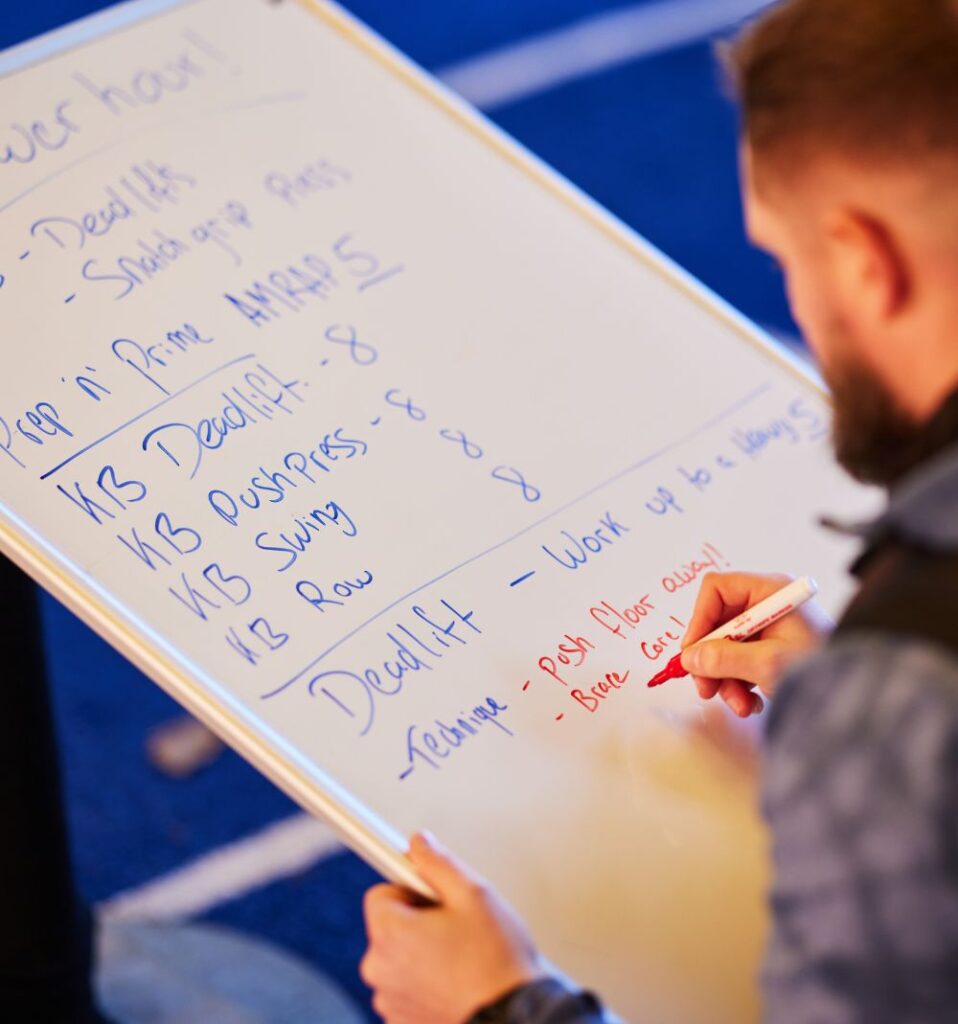 wer hour!
- Deadlifts
- Snatch grip Press
Prep 'n' Prime AMRAP 5
KB Deadlift - 8
KB Push press - 8
KB Swing 8
KB Row 8
Deadlift - Work up to a Heavy 5
- Technique - Push floor away!
- Brace Core!